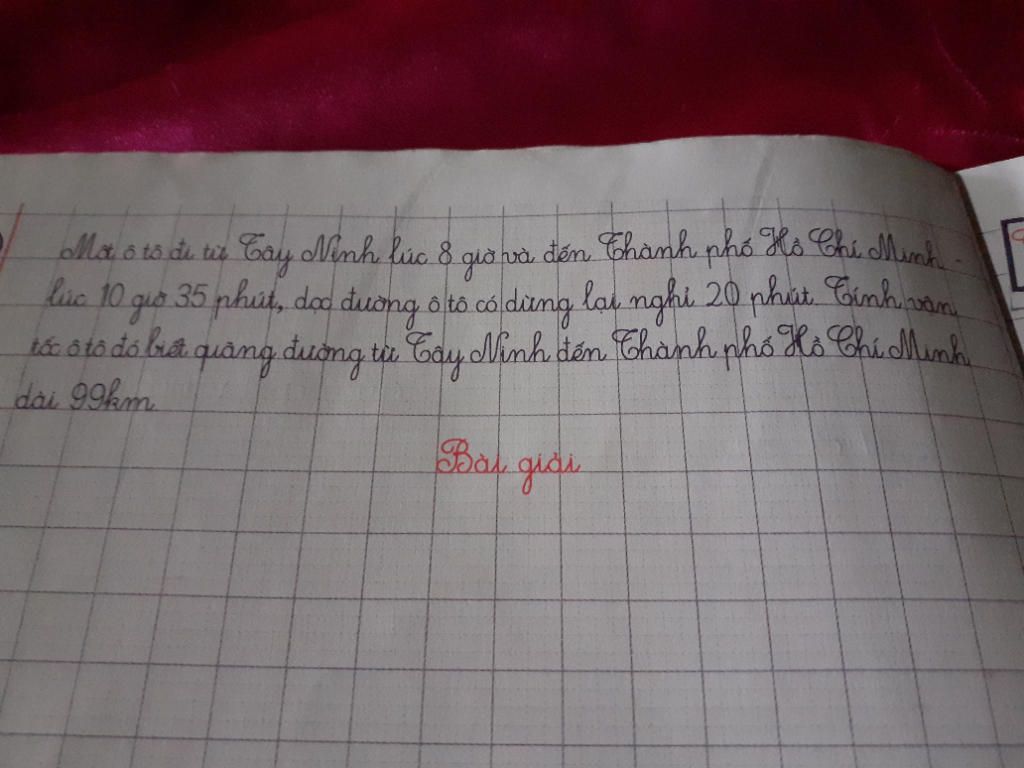 Một ô tô đi từ Tây Ninh lúc 8 giờ và đến Thành phố Hồ Chí Minh
lúc 10 giờ 35 phút, dọc đường ô tô có dừng lại nghỉ 20 phút. Tính vận
tốc ô tô đó biết quãng đường từ Tây Ninh đến Thành phố Hồ Chí Minh
dài 99km.
Bài giải